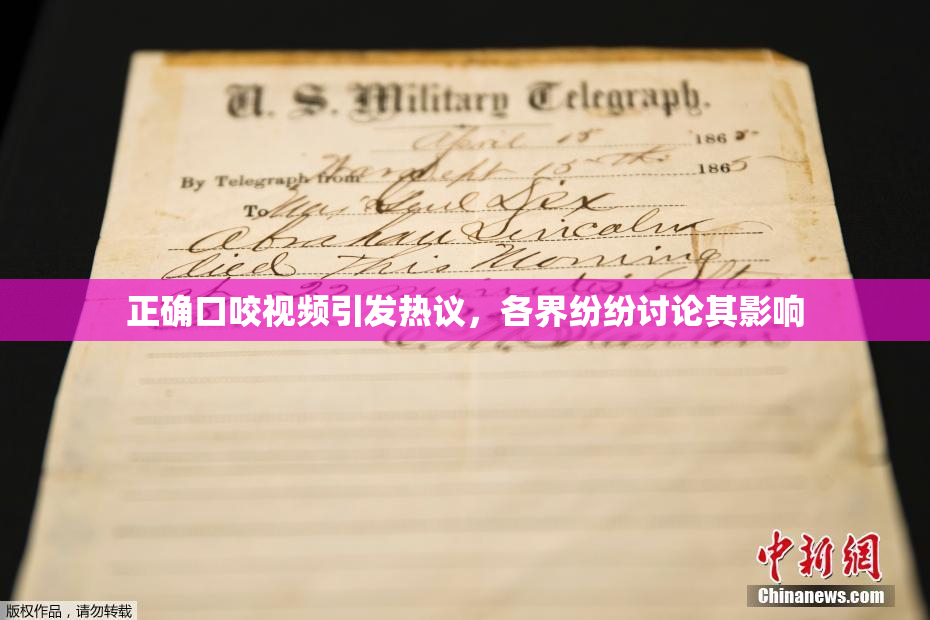 U. S. Military Telegraph.
April 15 1865
By Telegraph from War Dept 15th 1865
To Maj Genl Dix
Abraham Lincoln
died This Morning
22 minutes after
正确口咬视频引发热议，各界纷纷讨论其影响
E. M. Stanton
中新网
Chinanews.com
版权作品，请勿转载